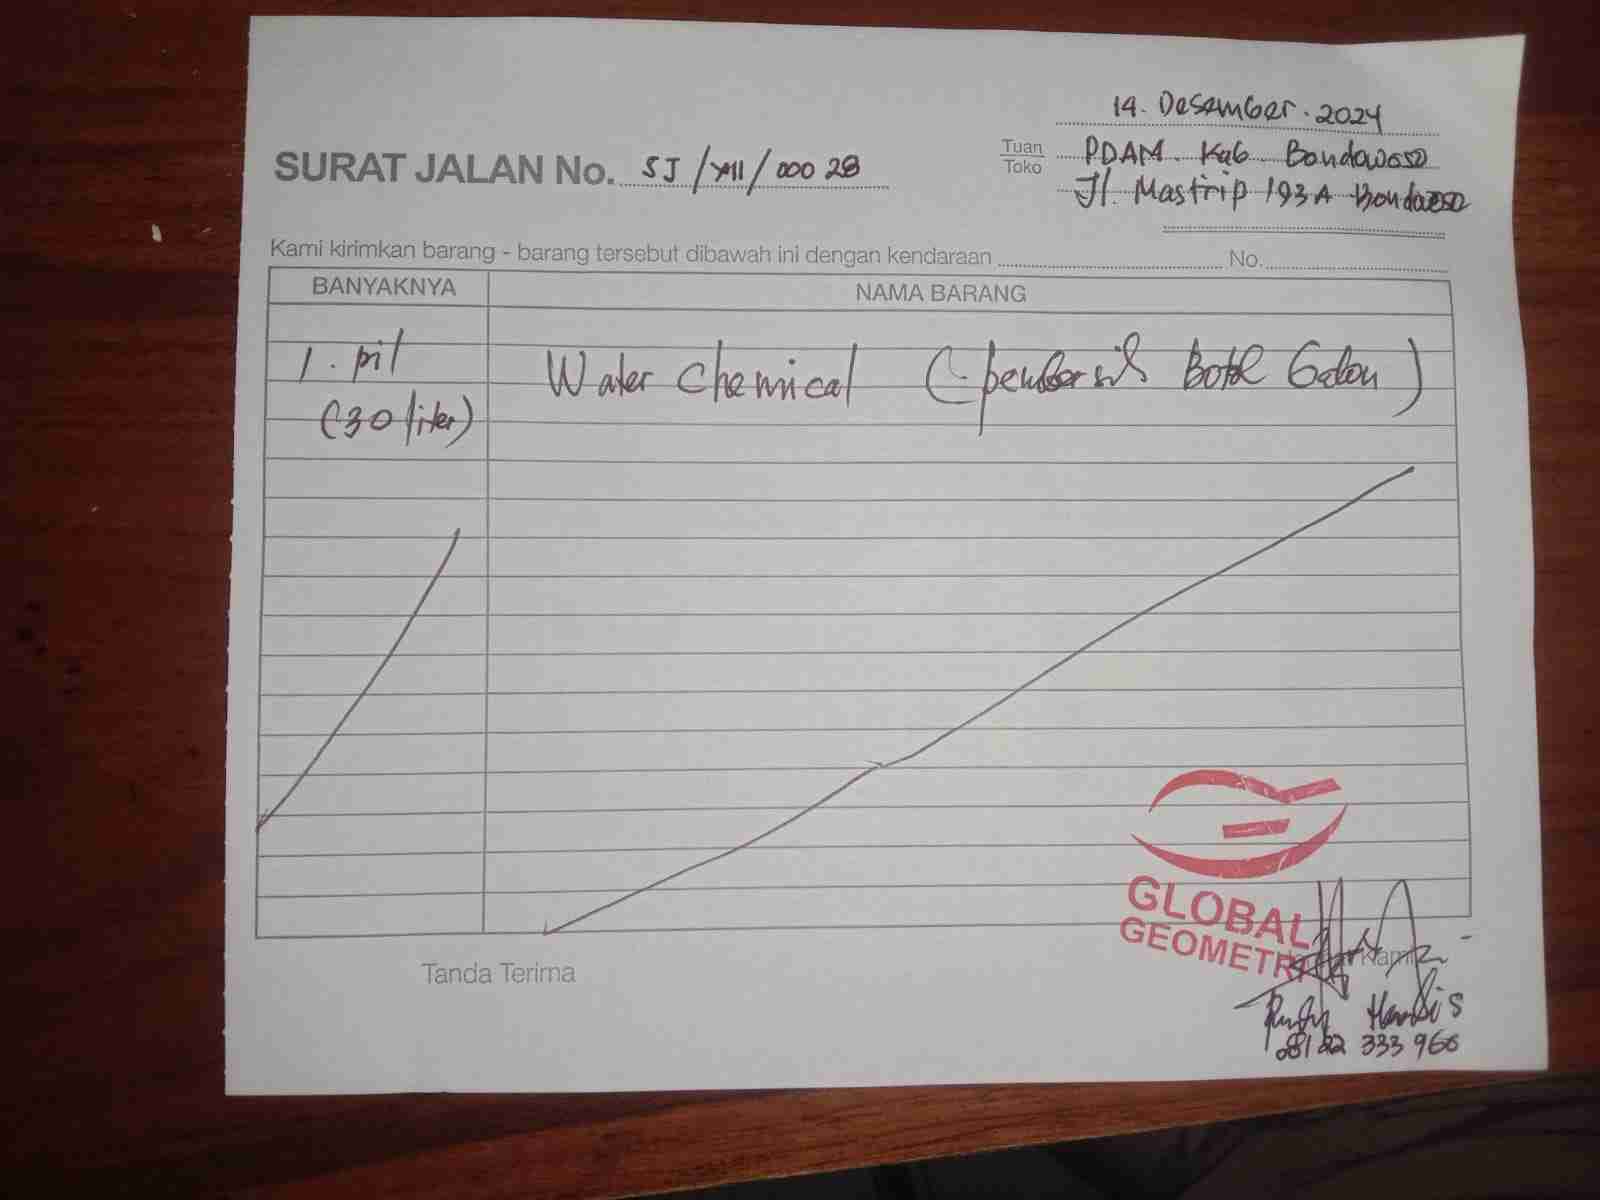 14. Desember. 2024
SURAT JALAN No. SJ/XII/000 28
Tuan
Toko
PDAM. Kab Bondowoso
Jl. Mastrip 193 A Bondowoso
Kami kirimkan barang - barang tersebut dibawah ini dengan kendaraan ........ No. ........
BANYAKNYA NAMA BARANG
1. pil Water Chemical (pembersih Botol Galon)
(30 liter)
GLOBAL
GEOMETRI
Tanda Terima Kami
Rudy
333 966